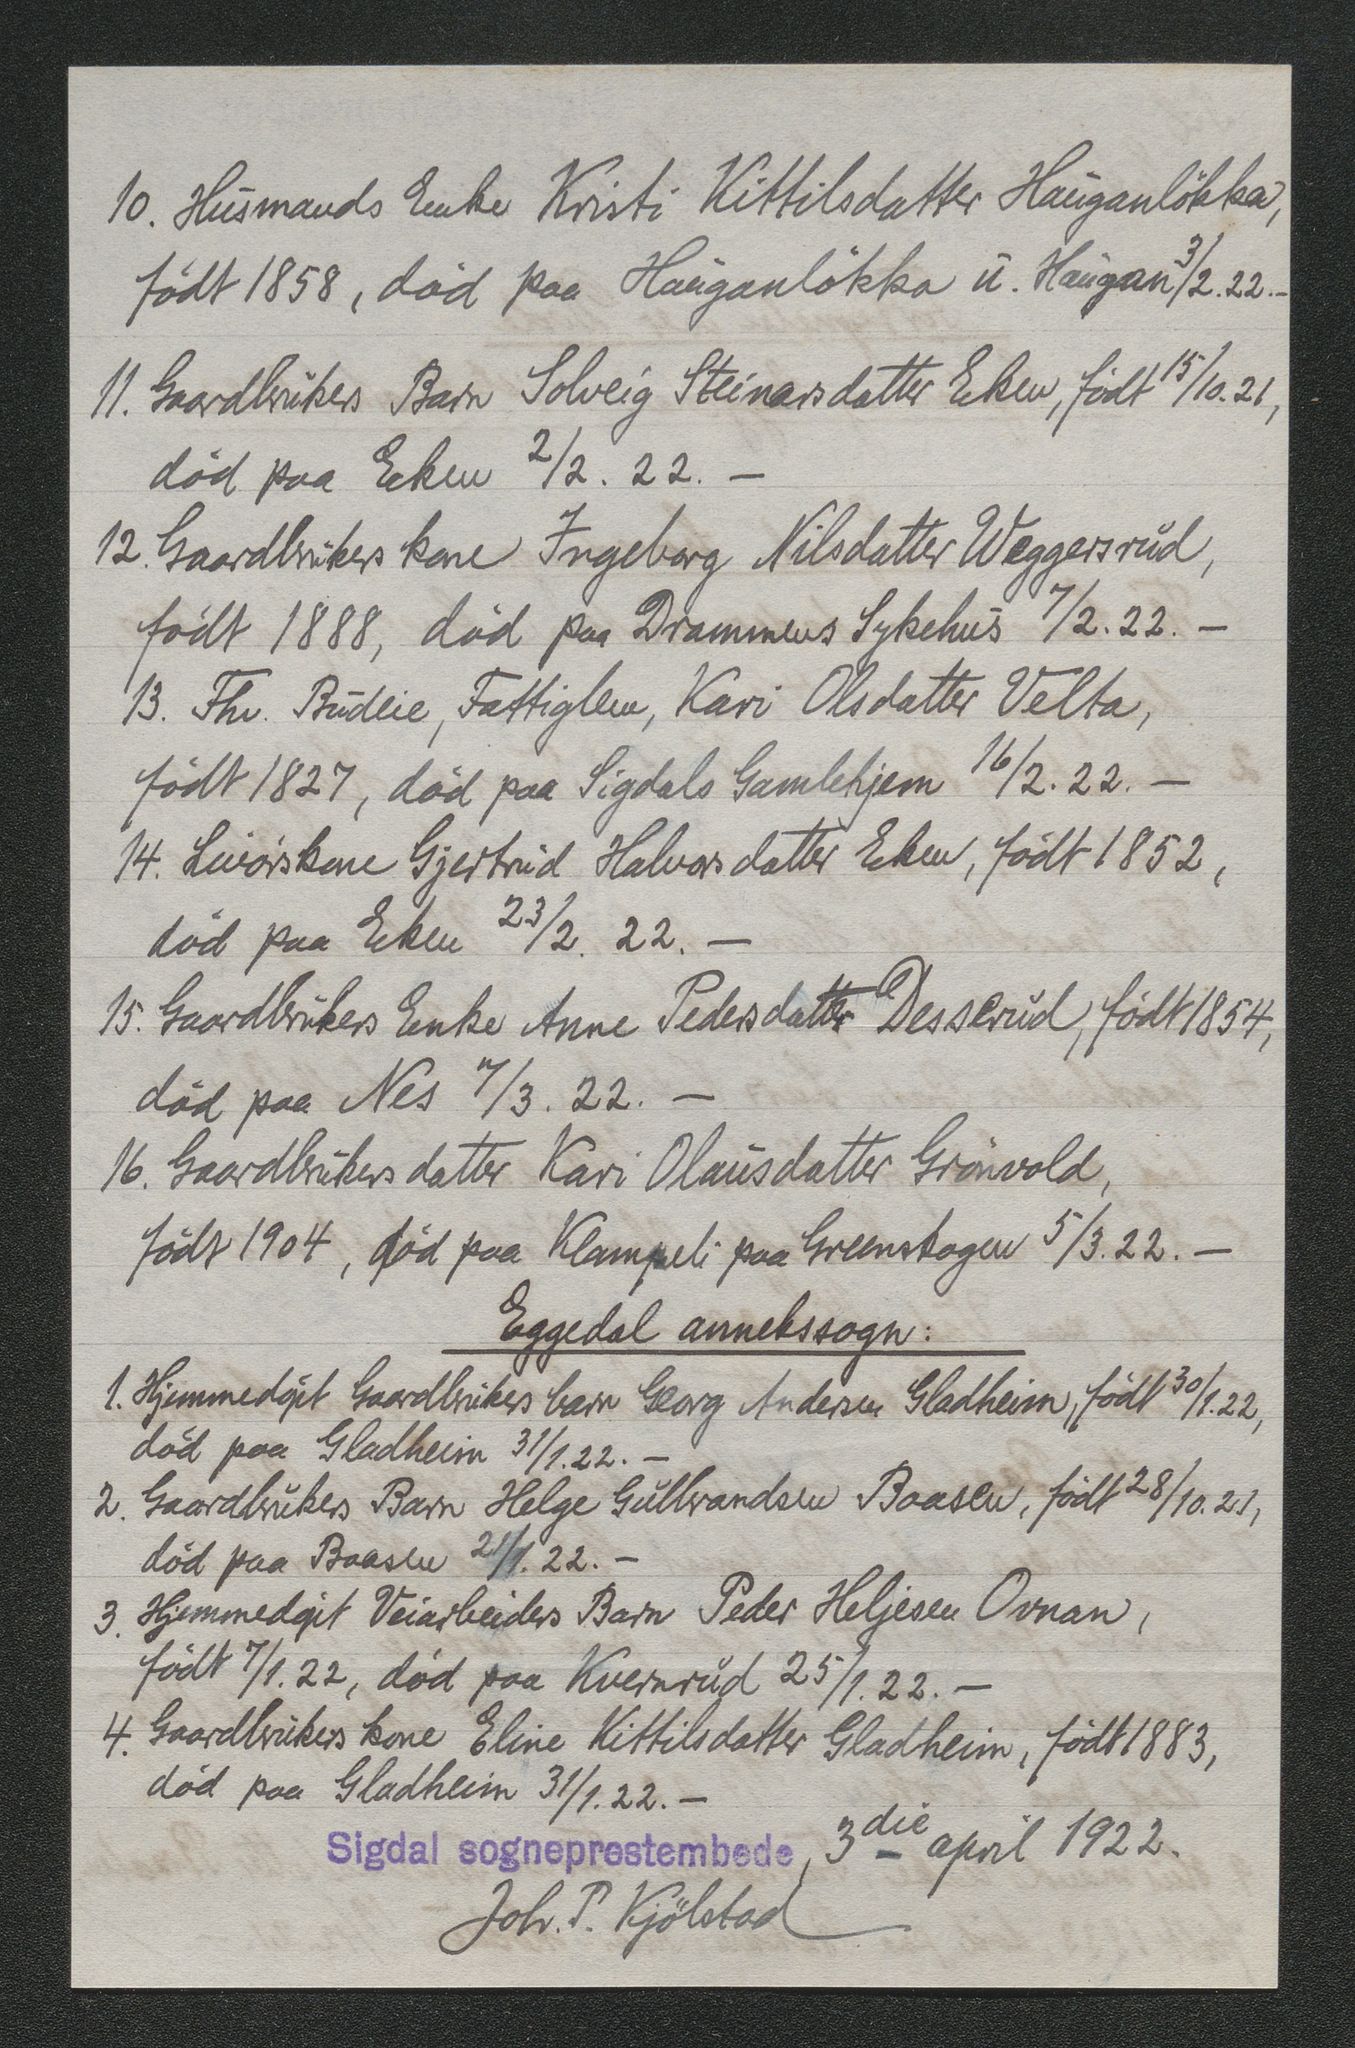 10. Husmands Enke Kristi Kittilsdatter Hauganlökka,
født 1858, död paa Hauganlökka u. Haugan 3/2.22.-
11. Gaardbrukers Barn Solveig Steinarsdatter Eken, födt 15/10.21,
död paa Eken 2/2. 22. -
12. Gaardbrukers kone Ingeborg Nilsdatter Weggersrud,
födt 1888, död paa Drammens Sykehus 7/2.22. -
13. Fhv. Budeie, Fattiglem, Kari Olsdatter Velta,
födt 1827, död paa Sigdals Gamlehjem 16/2.22. -
14. Livörskone Gjertrud Halvorsdatter Eken, födt 1852,
död paa Eken 23/2. 22. -
15. Gaardbrukers Enke Anne Pedersdatter Desserud, födt 1854,
död paa Nes 7/3. 22. -
16. Gaardbrukers datter Kari Olausdatter Grönvold,
födt 1904, död paa Klampeli paa Greenskogen 5/3.22. -
Eggedal annekssogn:
1. Hjemmedöpt Gaardbrukers barn Georg Andersen Gladheim, födt 30/1.22,
död paa Gladheim 31/1.22. -
2. Gaardbrukers Barn Helge Gulbrandsen Baasen, födt 28/10.21,
död paa Baasen 21/1.22. -
3. Hjemmedöpt Veiarbeiders Barn Peder Heljesen Ovnan,
födt 7/1.22, död paa Kvernrud 25/1.22. -
4. Gaardbrukers kone Eline Kittilsdatter Gladheim, födt 1883,
död paa Gladheim 31/1.22. -
Sigdal sogneprestembede, 3die april 1922.
Joh. P. Kjölstad